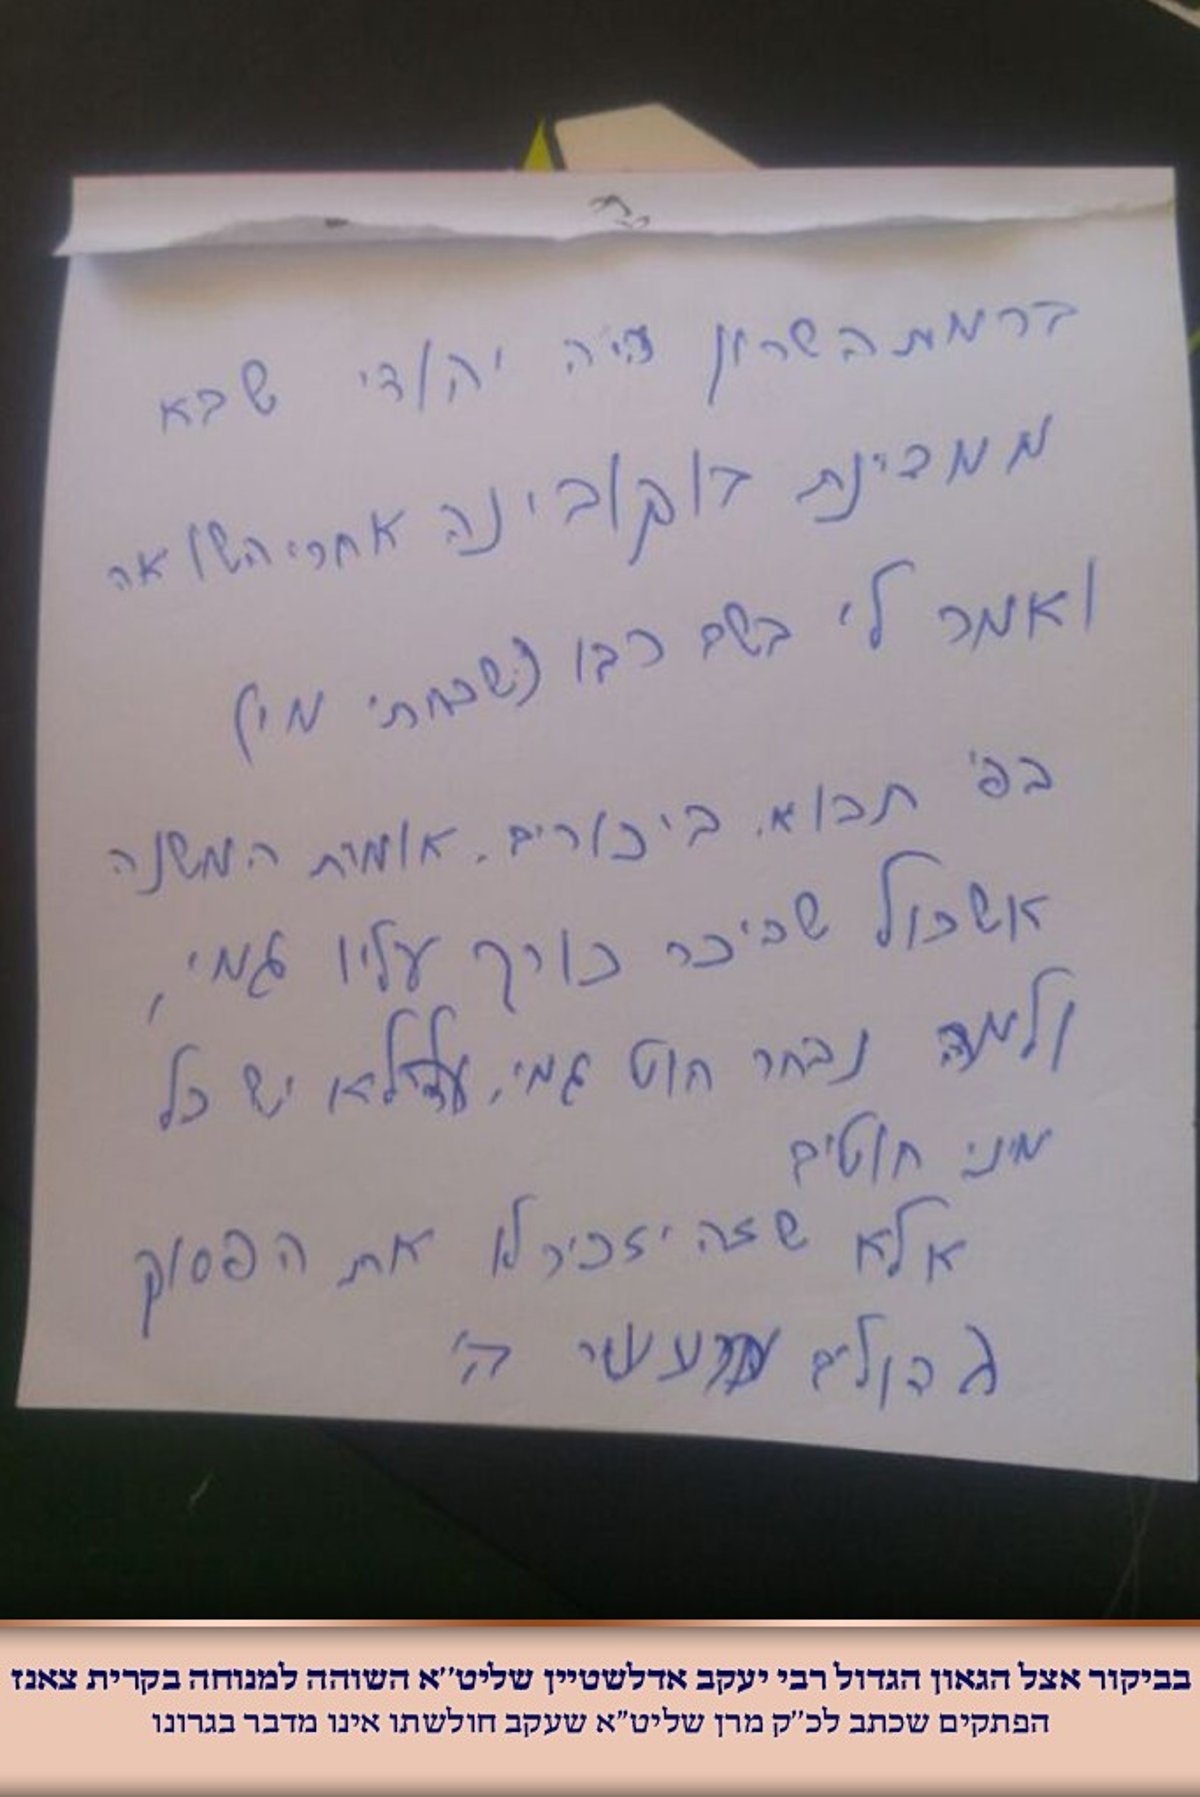 ברמת השרון היה יהודי שבא
ממדינת בוקובינה אחרי השואה
ואמר לי בשם רבו (שכחתי מי)
בפ' תבוא. ביכורים. אומרת המשנה
אשכול שביכר כורך עליו גמי,
ולמה נבחר חוט גמי, הלא יש כל
מיני חוטים
אלא שזה יזכיר לו את הפסוק
גדולים מעשי ה'
בביקור אצל הגאון הגדול רבי יעקב אדלשטיין שליט''א השוהה למנוחה בקרית צאנז
הפתקים שכתב לכ''ק מרן שליט"א שעקב חולשתו אינו מדבר בגרונו